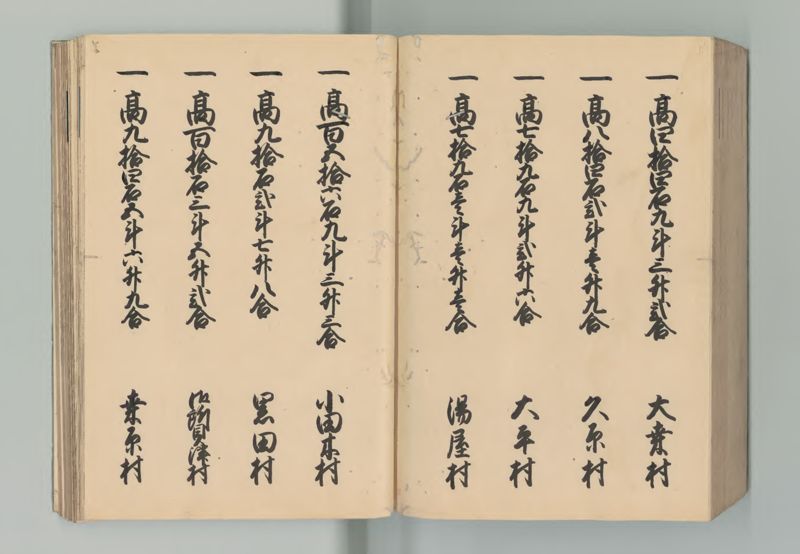 一 高四拾四石九斗三升弐合 大桒村
一 高八拾四石弐斗壱升九合 久原村
一 高七拾九石九斗弐升六合 大平村
一 高七拾九石壱斗壱升壱合 湯屋村
一 高百五拾六石九斗三升三合 小田本村
一 高九拾石弐斗七升八合 黒田村
一 高百拾石三斗五升弐合 津村
一 高九拾四石五斗六升九合 桒原村